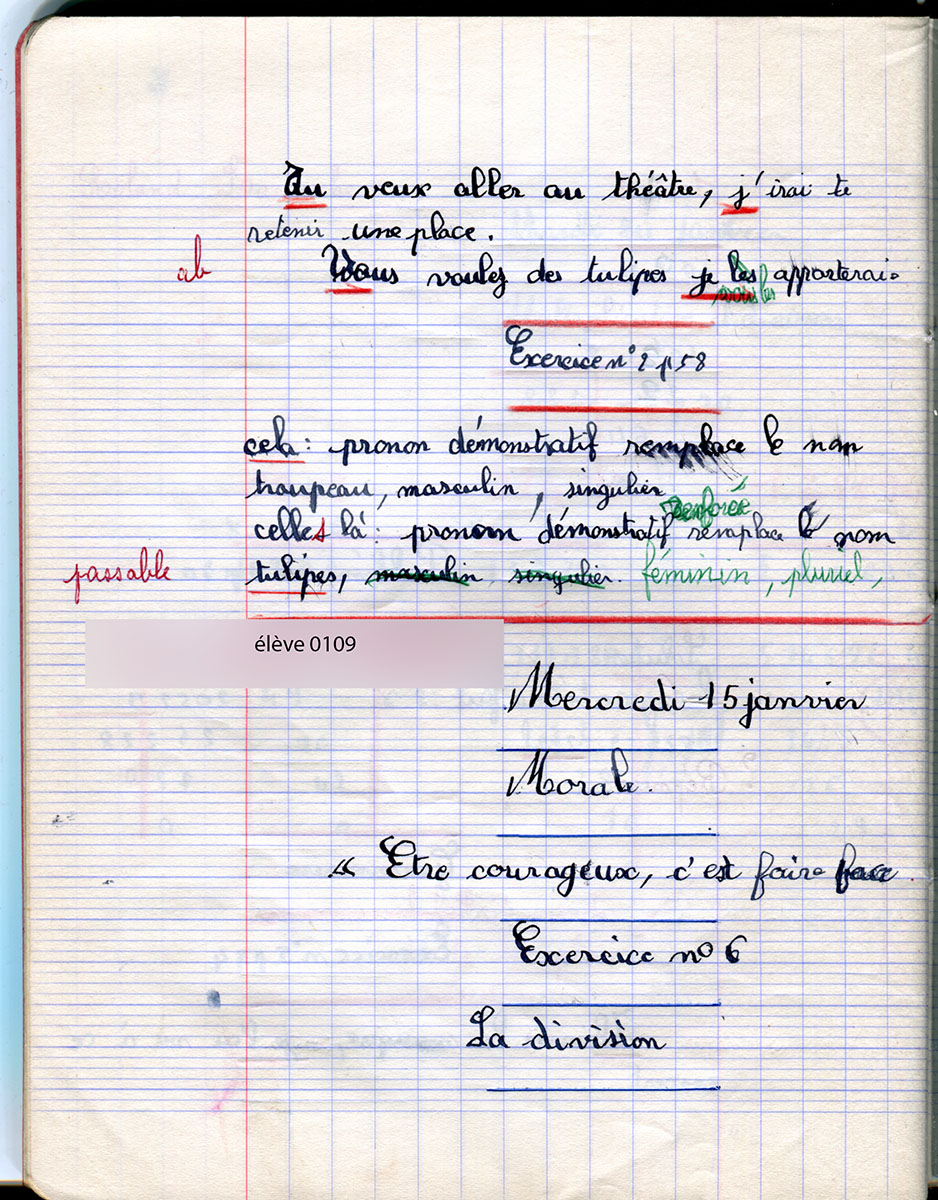 Tu veux aller au théâtre, j'irai te
retenir une place.
ab
Vous voulez des tulipes je les apporterai.
vous les
Exercice n° 2 p 58
cela : pronom démonstratif remplace le nom
troupeau, masculin, singulier
renforcé
celles là : pronom démonstratif remplace le nom
passable
tulipes, masculin singulier. féminin, pluriel,
élève 0109
Mercredi 15 janvier
Morale.
« Etre courageux, c'est faire face
Exercice n° 6
La division